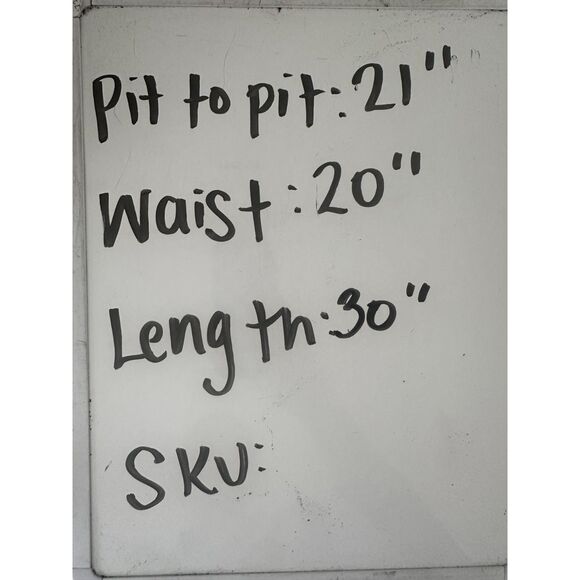 Pit to pit: 21"
Waist: 20"
Length: 30"
SKU: